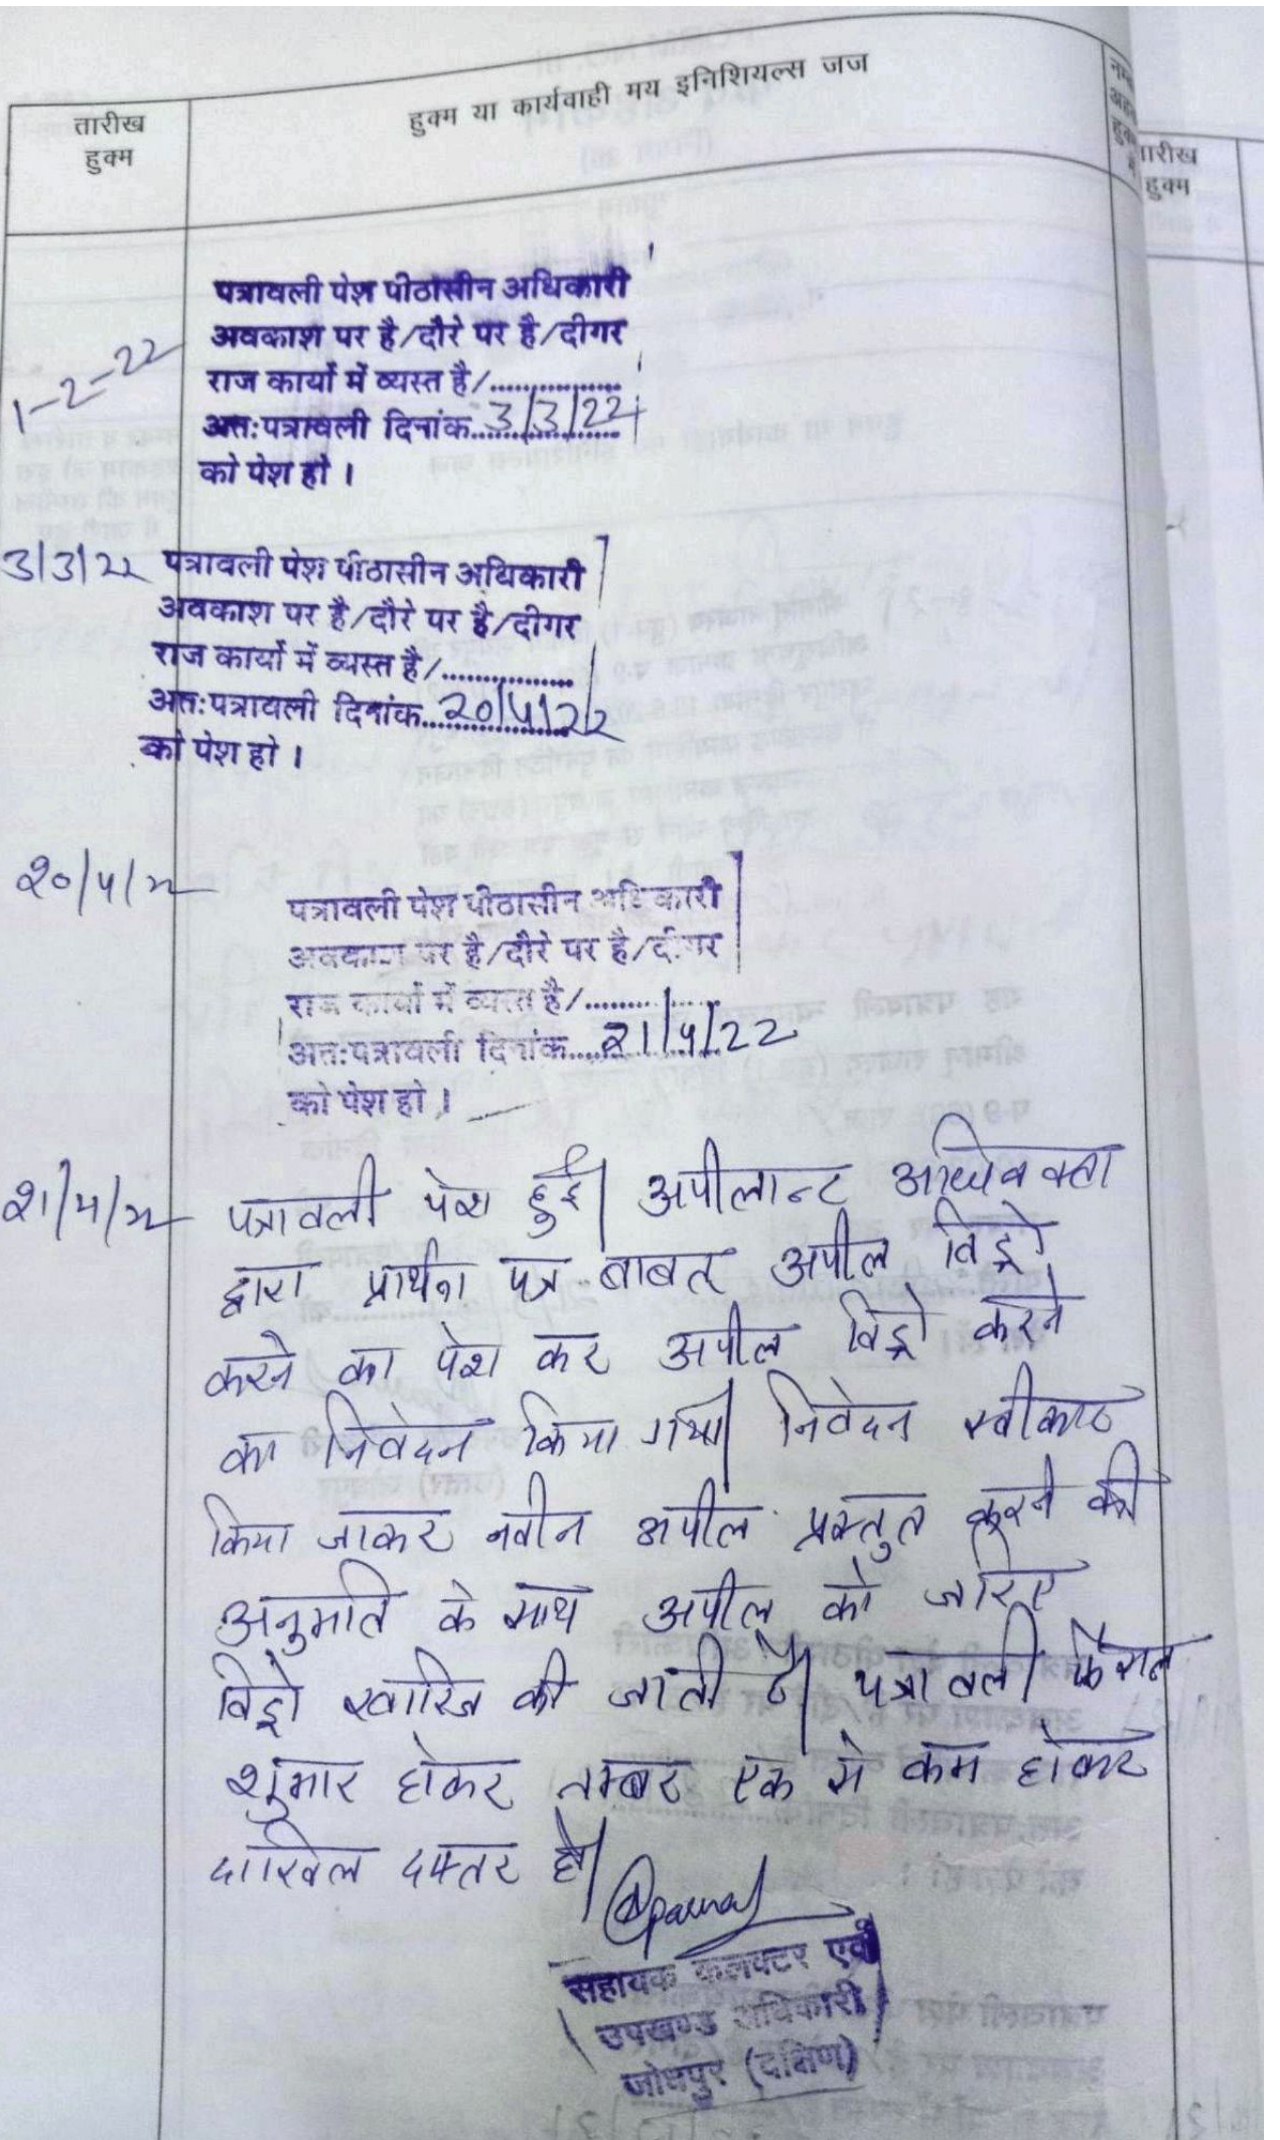 तारीख
हुक्म
हुक्म या कार्यवाही मय इनिशियल्स जज
तारीख
हुक्म
1-2-22
पत्रावली पेश पीठासीन अधिकारी
अवकाश पर है/दौरे पर है/दीगर
राज कार्यों में व्यस्त है/..................
अतः पत्रावली दिनांक....3/3/22....
को पेश हो ।
3/3/22 पत्रावली पेश पीठासीन अधिकारी
अवकाश पर है/दौरे पर है/दीगर
राज कार्यों में व्यस्त है/..................
अतः पत्रावली दिनांक....20/4/22
को पेश हो ।
20/4/22
पत्रावली पेश पीठासीन अधिकारी
अवकाश पर है/दौरे पर है/दीगर
राज कार्यों में व्यस्त है/..................
अतः पत्रावली दिनांक....21/4/22
को पेश हो ।
21/4/22 पत्रावली पेश हुई। अपीलान्ट अधिवक्ता
द्वारा प्रार्थना पत्र बाबत् अपील विड्रो
करने का पेश कर अपील विड्रो करने
का निवेदन किया गया। निवेदन स्वीकार
किया जाकर नवीन अपील प्रस्तुत करने की
अनुमति के साथ अपील को जरिए
विड्रो खारिज की जाती है। पत्रावली फैसल
शुमार होकर नम्बर एक से कम होकर
दाखिल दफ्तर हो।
सहायक कलक्टर एवं
उपखण्ड अधिकारी
जोधपुर (दक्षिण)